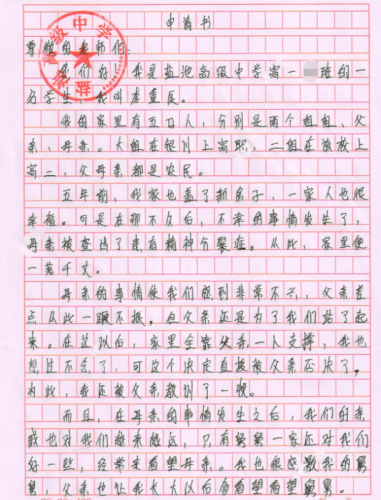 申请书
尊敬的老师们:
你们好!我是盐池高级中学高一 班的一
名学生,我叫李重民。
我的家里有五口人,分别是两个姐姐,父
亲、母亲。大姐在银川上高职,二姐在该校上
高二,父母亲都是农民。
五年前,我家也盖了新房子,一家人也很
幸福。可是在那不久后,不幸的事情发生了,
母亲被查出了患有精神分裂症。从此,家里便
一落千丈。
母亲的事情使我们感到非常不幸,父亲差
点从此一蹶不振,但父亲还是为了我们站了起
来。在这以后,家里全靠父亲一人支撑,我也
想过不念了,可这个决定直接被父亲否决了,
为此,我还被父亲教训了一顿。
而且,在母亲的事情发生之后,我们的亲
戚也对我们越来越远,只有舅舅一家还对我们
好一些,经常来看望母亲。我也很感激我的舅
舅,父亲也让我长大以后多看望看望舅舅。
盐池高级中学